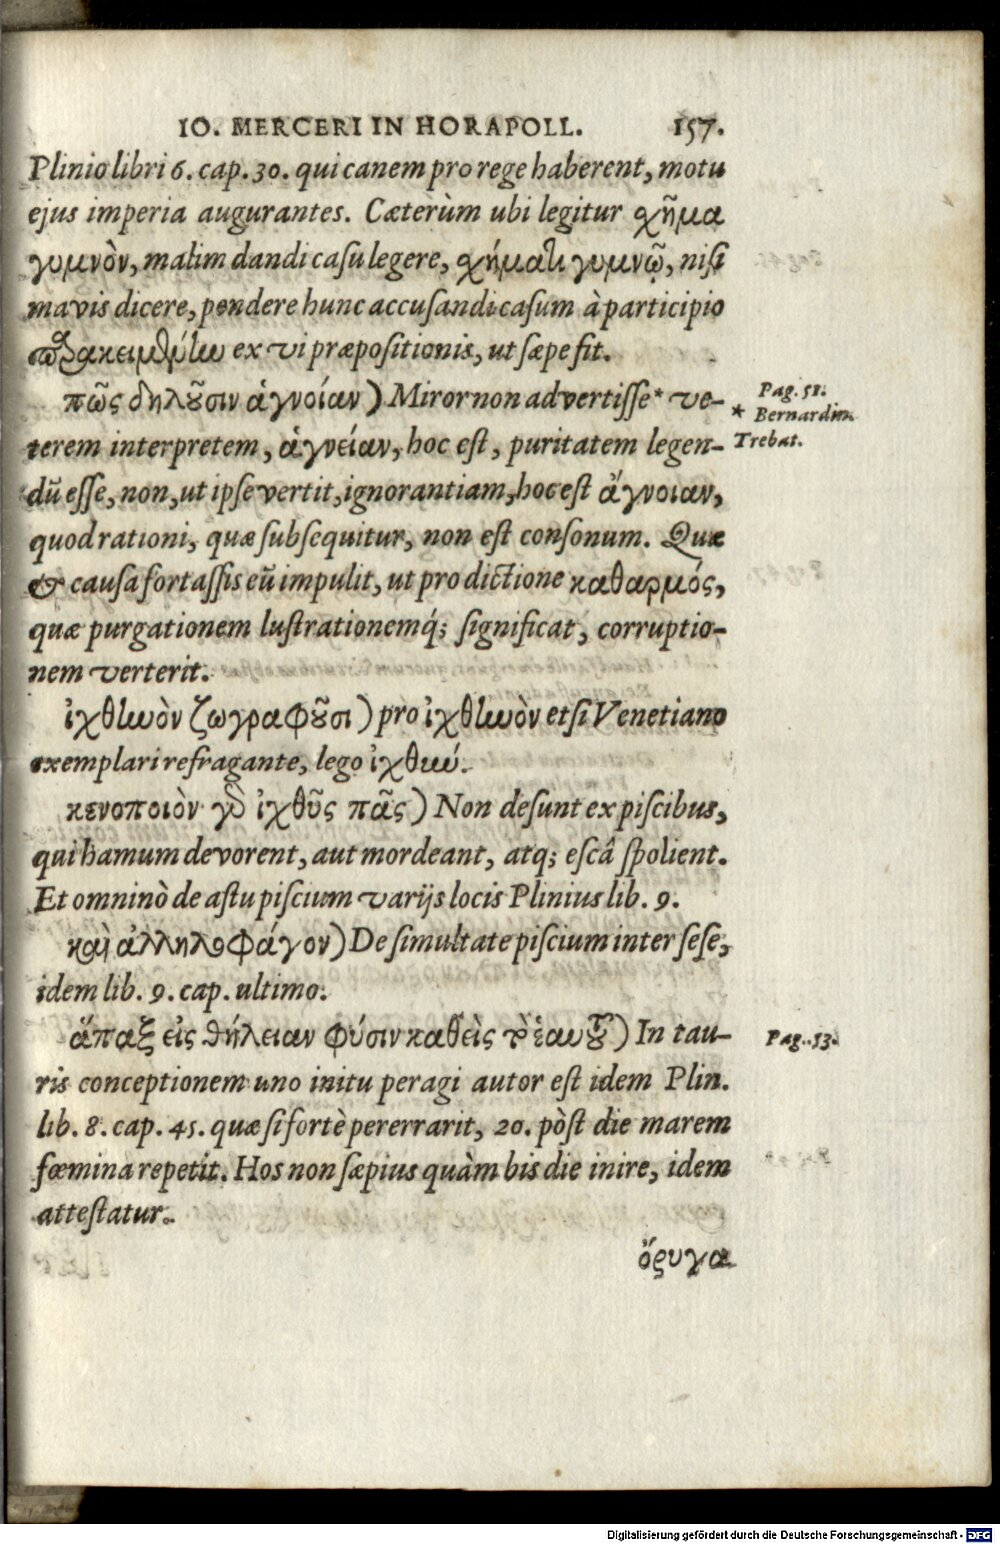 IO. MERCERI IN HORAPOLL. 157.
Plinio libri 6. cap. 30. qui canem pro rege haberent, motu
ejus imperia augurantes. Cæterùm ubi legitur σχῆμα
γυμνὸν, malim dandi casu legere, σχήματι γυμνῷ, nisi
mavis dicere, pendere hunc accusandi casum à participio
παρακειμένην ex vi præpositionis, ut sæpe fit.
πῶς δηλοῦσιν ἁγνοίαν) Miror non advertisse * ve-
terem interpretem, ἁγνείαν, hoc est, puritatem legen-
dũ esse, non, ut ipse vertit, ignorantiam, hoc est ἄγνοιαν,
quod rationi, quæ subsequitur, non est consonum. Quæ
& causa fortassis eũ impulit, ut pro dictione καθαρμός,
quæ purgationem lustrationemq́; significat, corruptio-
nem verterit.
ἰχθυνὸν ζωγραφοῦσι) pro ἰχθυνὸν etsi Venetiano
exemplari refragante, lego ἰχθύν.
κενοποιὸν γὰρ ἰχθῦς πᾶς) Non desunt ex piscibus,
qui hamum devorent, aut mordeant, atq; escâ spolient.
Et omninò de astu piscium varijs locis Plinius lib. 9.
καὶ ἀλληλοφάγον) De simultate piscium inter sese,
idem lib. 9. cap. ultimo.
ἅπαξ εἰς θήλειαν φύσιν καθεὶς τὸ ἑαυτοῦ) In tau-
ris conceptionem uno initu peragi autor est idem Plin.
lib. 8. cap. 45. quæ si fortè pererrarit, 20. pòst die marem
fœmina repetit. Hos non sæpius quàm bis die inire, idem
attestatur.
ὄρυγα
Pag. 51.
* Bernardin.
Trebat.
Pag. 53.
Digitalisierung gefördert durch die Deutsche Forschungsgemeinschaft - DFG